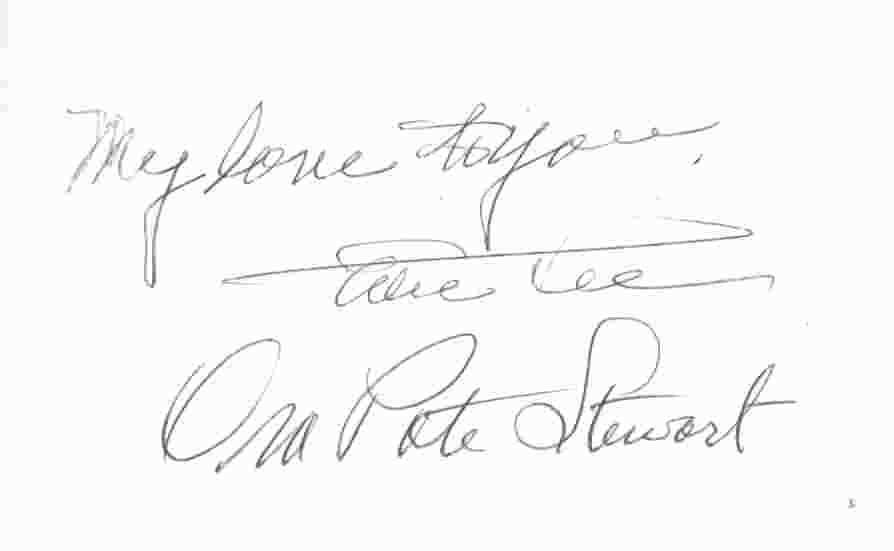 My love to you,
Ora Pate Stewart